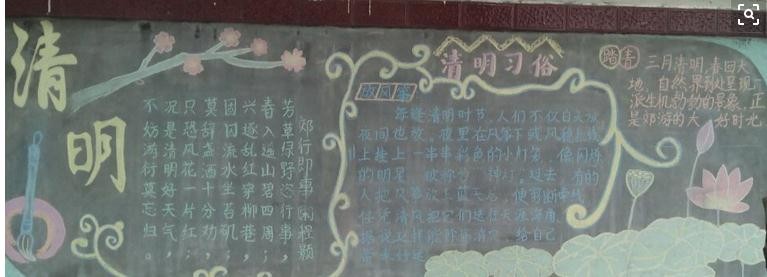 清明
郊行即事 宋 程颢
芳草绿野恣行事，
春入遥山碧四周；
兴逐乱红穿柳巷，
困因流水坐苔矶；
莫辞盏酒十分劝，
只恐风花一片红；
况是清明好天气，
不妨游衍莫忘归。
清明习俗
放风筝
每逢清明时节，人们不仅白天放，
夜间也放。夜里在风筝下或风稳拉线
上挂上一串串彩色的小灯笼，像闪烁
的明星，被称为“神灯”。过去，有的
人把风筝放上蓝天后，便剪断牵线，
任凭清风把它们送往天涯海角，
据说这样能除病消灾，给自己
带来好运
踏青
三月清明，春回大
地，自然界到处呈现一
派生机勃勃的景象，正
是郊游的大好时光